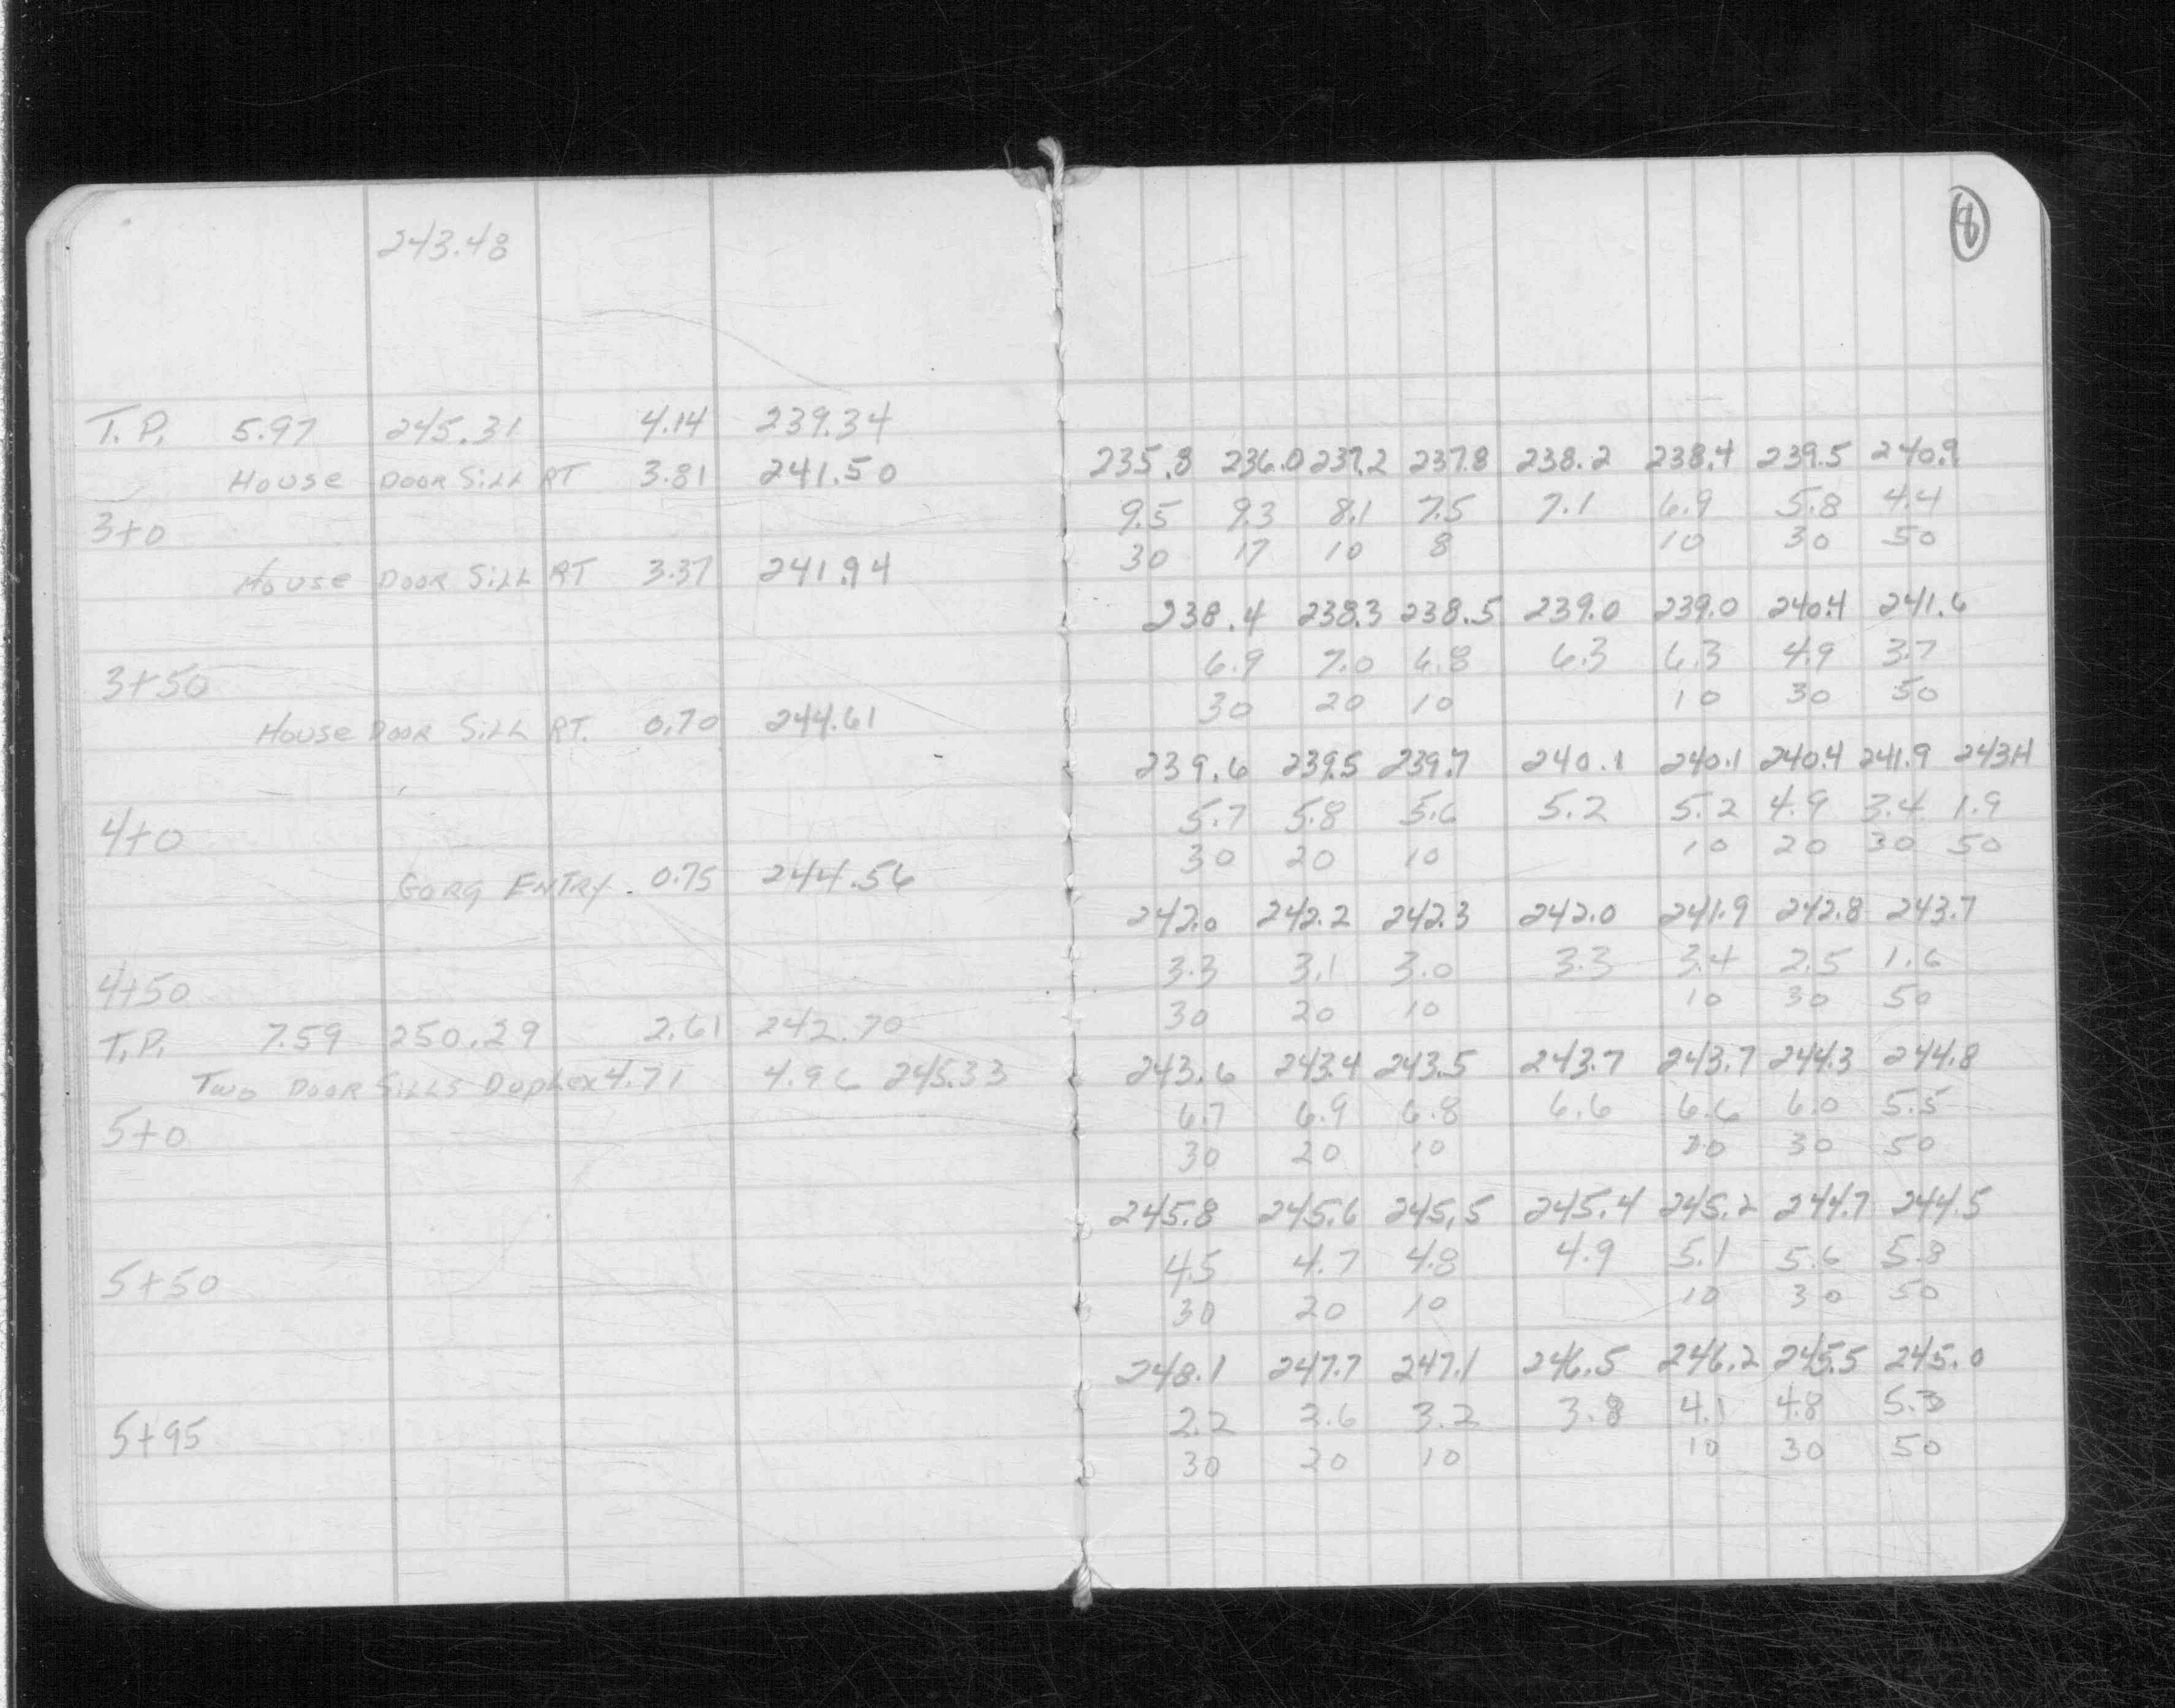 243.48
T.P. 5.97 245.31 4.14 239.34
House Door Sill RT 3.81 241.50
3+0
House Door Sill RT 3.37 241.94
3+50
House Door Sill RT. 0.70 244.61
4+0
Garg Entry. 0.75 244.56
4+50
T.P. 7.59 250.29 2.61 242.70
Two Door Sills Duplex 4.71 4.96 245.33
5+0
5+50
5+95
235.8 236.0 237.2 237.8 238.2 238.4 239.5 240.9
9.5 9.3 8.1 7.5 7.1 6.9 5.8 4.4
30 17 10 8 10 30 50
238.4 238.3 238.5 239.0 239.0 240.4 241.6
6.9 7.0 6.8 6.3 6.3 4.9 3.7
30 20 10 10 30 50
239.6 239.5 239.7 240.1 240.1 240.4 241.9 243.4
5.7 5.8 5.6 5.2 5.2 4.9 3.4 1.9
30 20 10 10 20 30 50
242.0 242.2 242.3 242.0 241.9 242.8 243.7
3.3 3.1 3.0 3.3 3.4 2.5 1.6
30 20 10 10 30 50
243.6 243.4 243.5 243.7 243.7 244.3 244.8
6.7 6.9 6.8 6.6 6.6 6.0 5.5
30 20 10 10 30 50
245.8 245.6 245.5 245.4 245.2 244.7 244.5
4.5 4.7 4.8 4.9 5.1 5.6 5.8
30 20 10 10 30 50
248.1 247.7 247.1 246.5 246.2 245.5 245.0
2.2 2.6 3.2 3.8 4.1 4.8 5.3
30 20 10 10 30 50